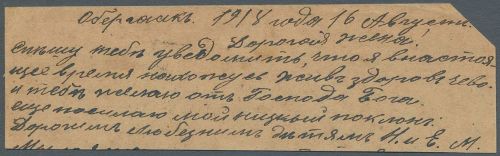 Обергаакъ. 1918 года 16 Августа.
Дорогая жена!
спешу тебѣ уведомить, что я в настоя
щее время нахожусь живъ здоровъ чево
и тебѣ желаю отъ Господа Бога.
еще посылаю мой низкий поклонъ.
Дорогимъ Любезнимъ дѣтямъ Н. и Е. М.